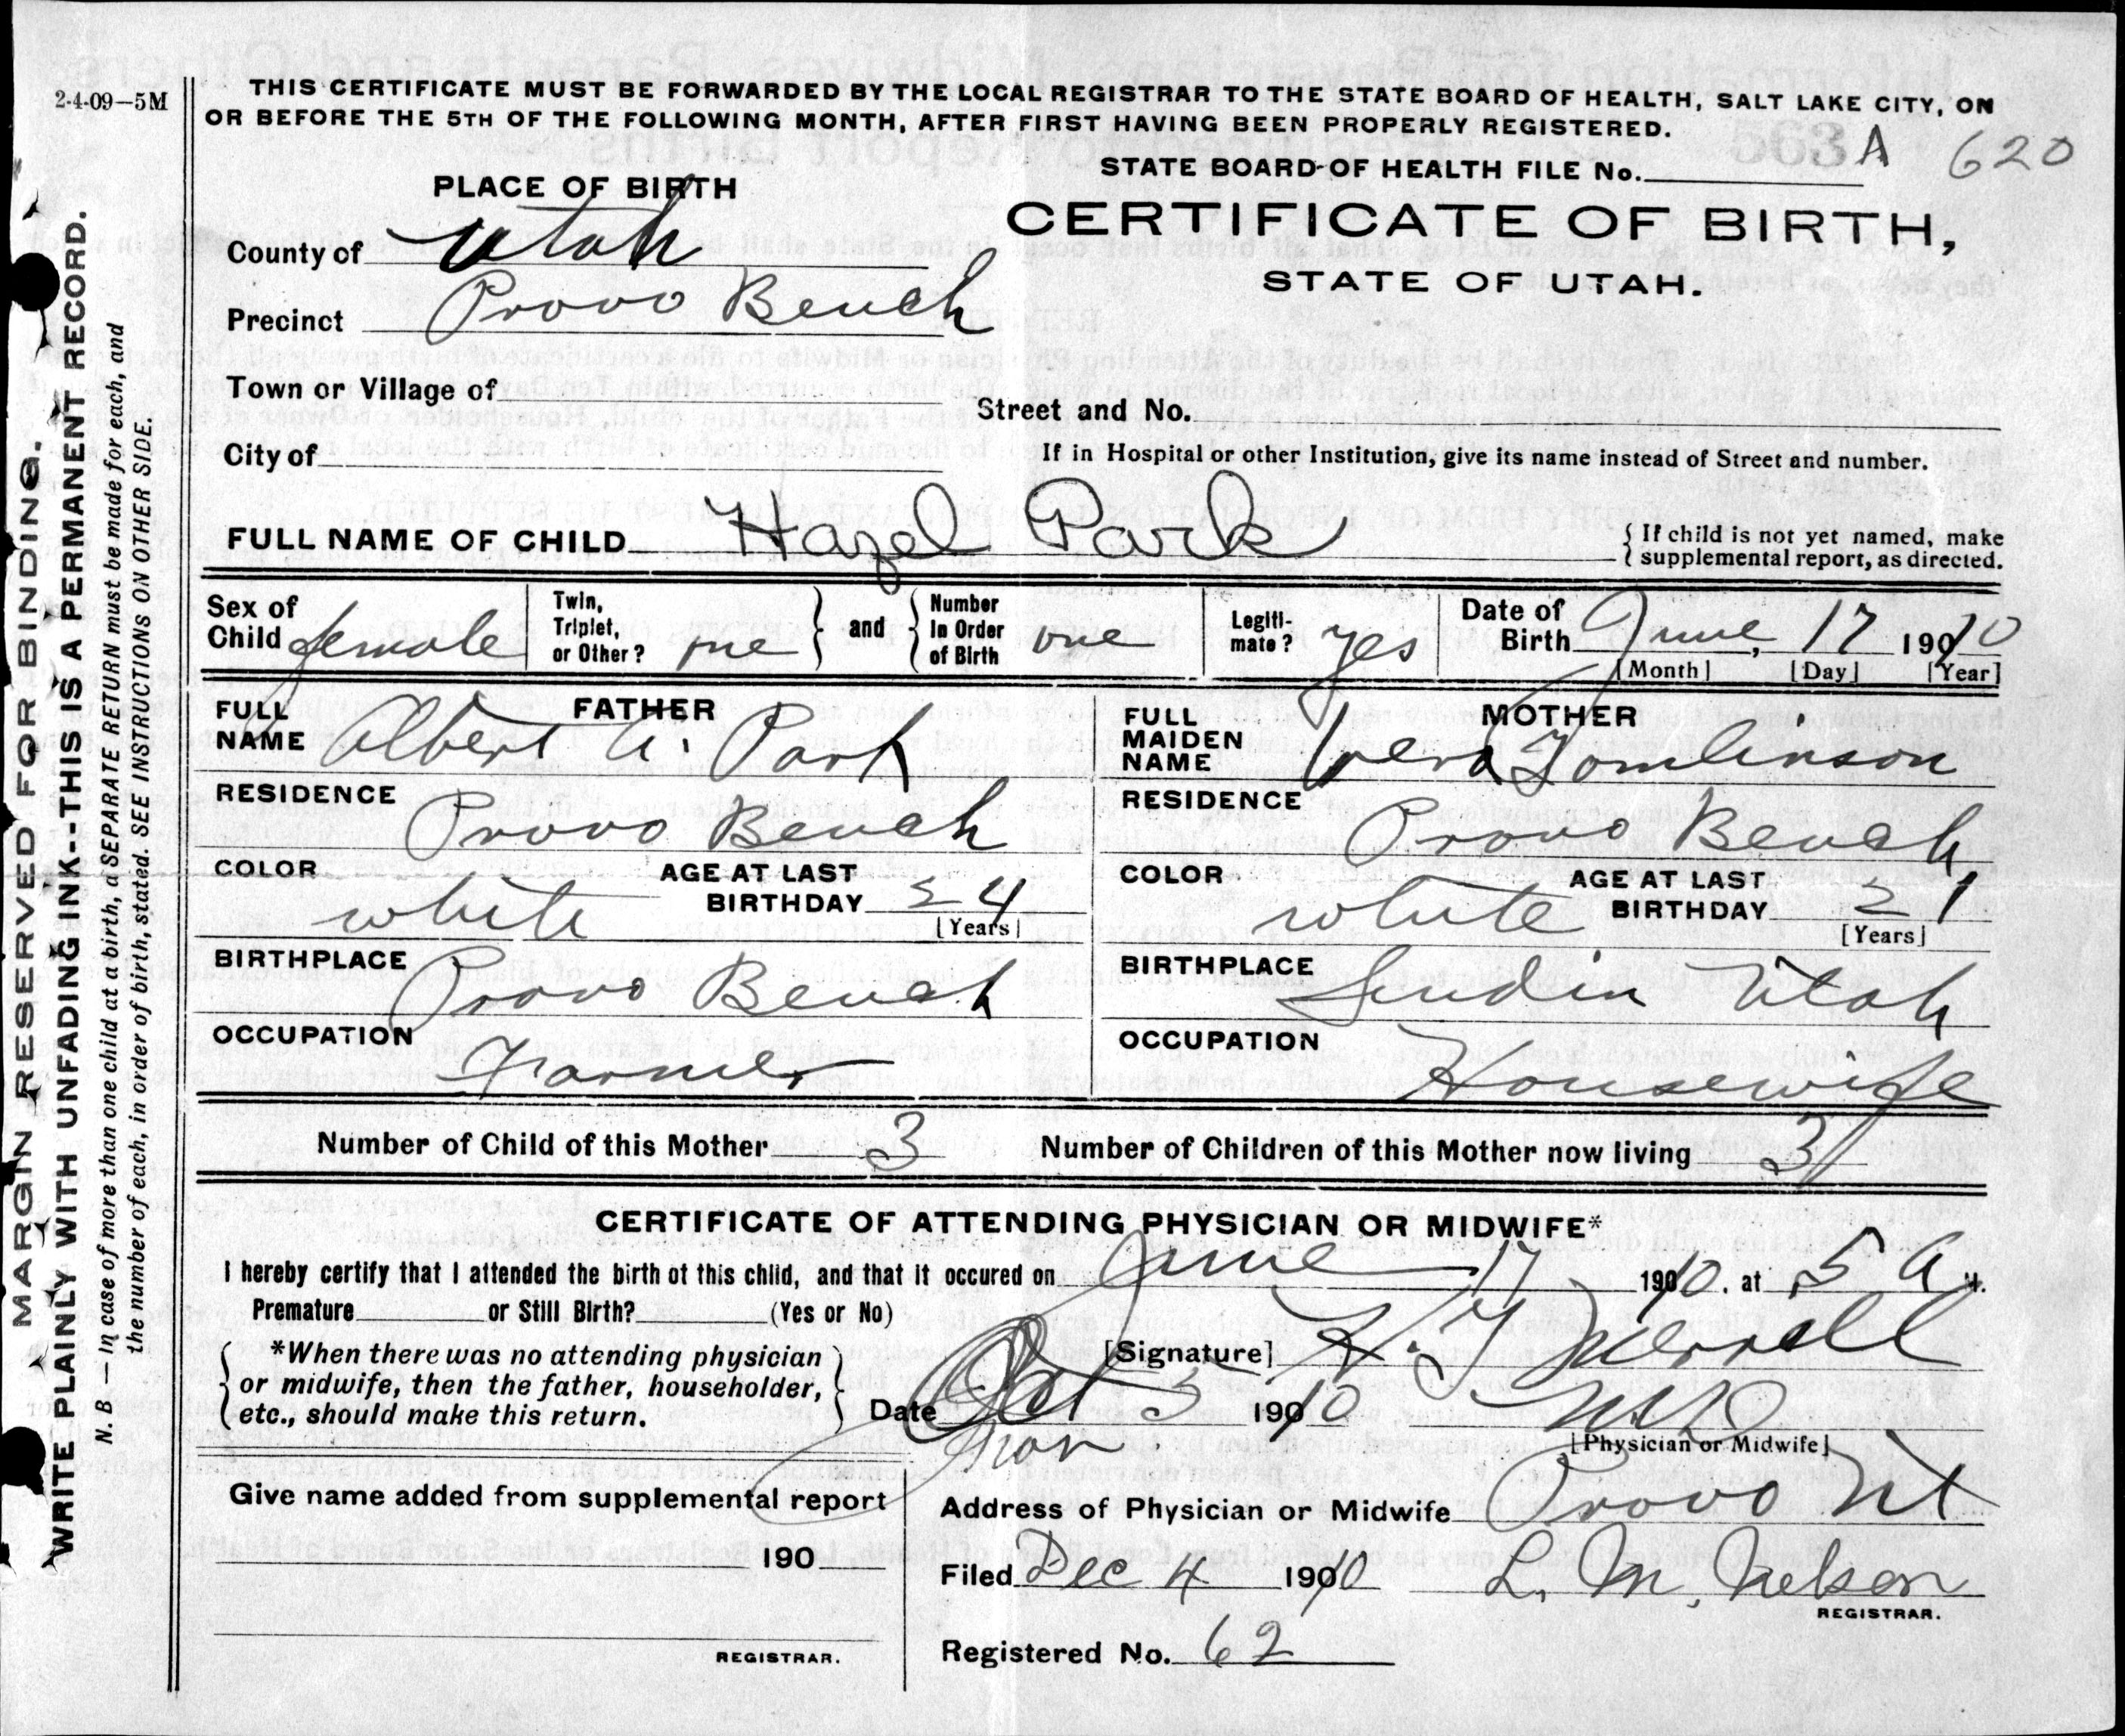 2-4-09—5M
THIS CERTIFICATE MUST BE FORWARDED BY THE LOCAL REGISTRAR TO THE STATE BOARD OF HEALTH, SALT LAKE CITY, ON
OR BEFORE THE 5TH OF THE FOLLOWING MONTH, AFTER FIRST HAVING BEEN PROPERLY REGISTERED.
STATE BOARD OF HEALTH FILE No. 563 A 620
PLACE OF BIRTH
CERTIFICATE OF BIRTH,
STATE OF UTAH.
County of Utah
Precinct Provo Bench
Town or Village of
Street and No.
City of
If in Hospital or other Institution, give its name instead of Street and number.
FULL NAME OF CHILD Hazel Park
{ If child is not yet named, make
{ supplemental report, as directed.
Sex of Child female
Twin, Triplet, or Other? one } and { Number In Order of Birth one
Legiti-mate? yes
Date of Birth June, 17 1910
[Month] [Day] [Year]
FATHER
FULL NAME Albert A. Park
RESIDENCE Provo Bench
COLOR white
AGE AT LAST BIRTHDAY 24
[Years]
BIRTHPLACE Provo Bench
OCCUPATION Farmer
MOTHER
FULL MAIDEN NAME Vera Tomlinson
RESIDENCE Provo Bench
COLOR white
AGE AT LAST BIRTHDAY 21
[Years]
BIRTHPLACE Utah
OCCUPATION Housewife
Number of Child of this Mother 3
Number of Children of this Mother now living 3
CERTIFICATE OF ATTENDING PHYSICIAN OR MIDWIFE*
I hereby certify that I attended the birth of this child, and that it occured on June 17 1910. at 5 A M.
Premature or Still Birth? (Yes or No)
*When there was no attending physician
or midwife, then the father, householder,
etc., should make this return.
[Signature] H. G. Merrell
MD
[Physician or Midwife]
Date Oct 5 1910
Give name added from supplemental report
190
REGISTRAR.
Address of Physician or Midwife Provo Ut
Filed Dec 4 1910 L. M. Nelson
REGISTRAR.
Registered No. 62
MARGIN RESERVED FOR BINDING.
WRITE PLAINLY WITH UNFADING INK--THIS IS A PERMANENT RECORD.
N. B — In case of more than one child at a birth, a SEPARATE RETURN must be made for each, and
the number of each, in order of birth, stated. SEE INSTRUCTIONS ON OTHER SIDE.